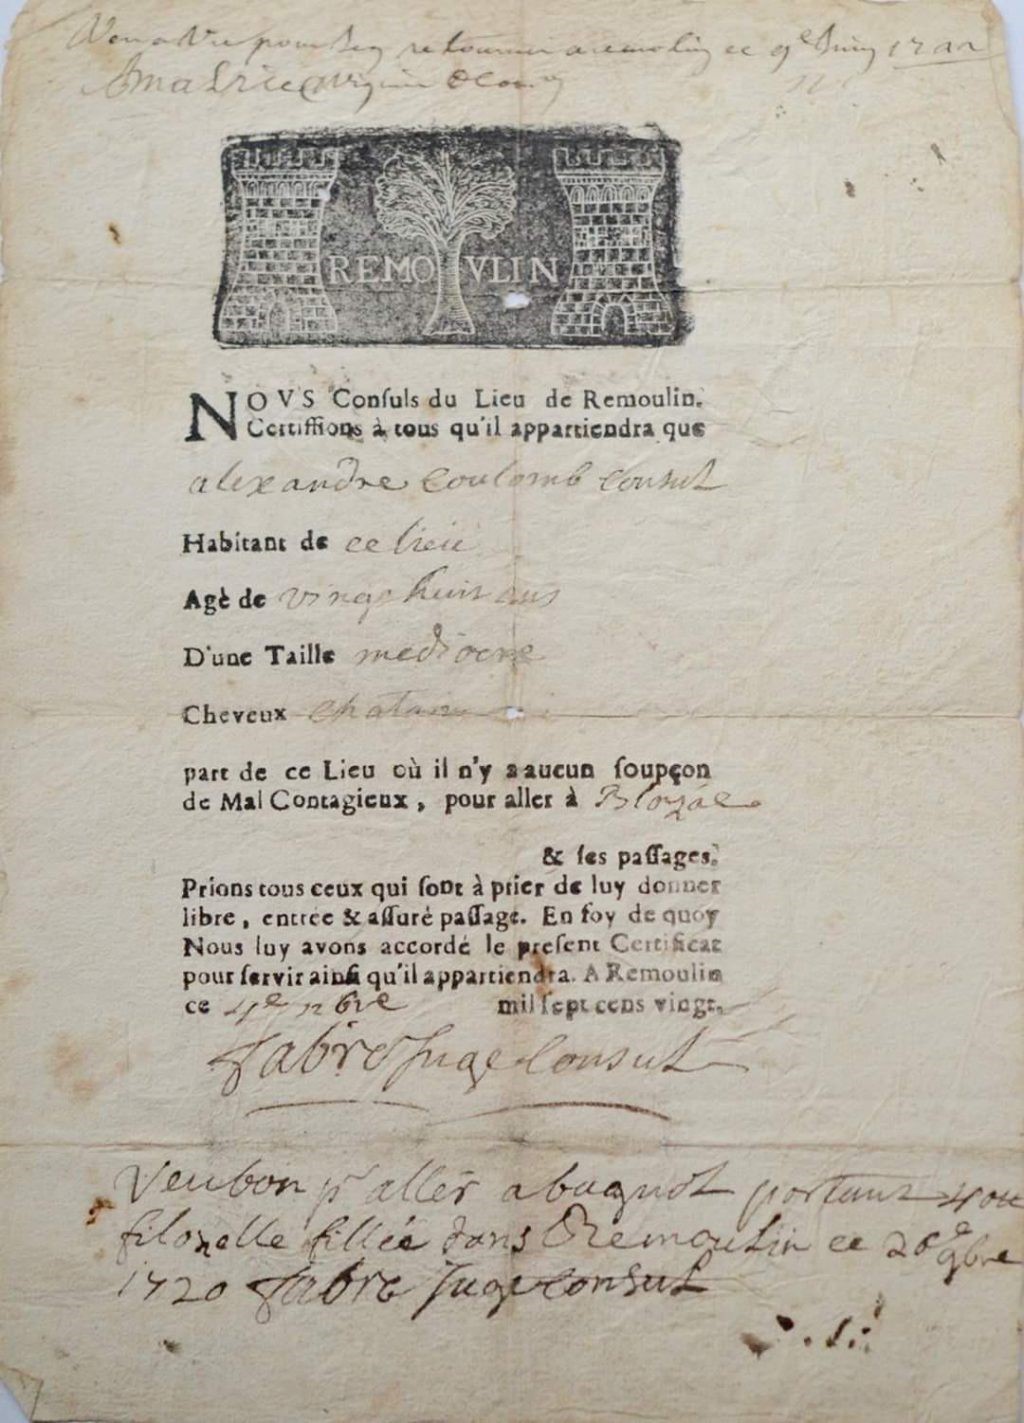 retourner a remolin ce 9e Juin
REMOVLIN
NOVS Conſuls du Lieu de Remoulin.
Certiffions à tous qu'il appartiendra que
alexandre Coulomb Consul
Habitant de ce lieu
Agè de vingt huit ans
D'une Taille mediocre
Cheveux chatan
part de ce Lieu où il n'y a aucun ſoupçon
de Mal Contagieux, pour aller à Blozac
& ſes paſſages.
Prions tous ceux qui ſont à prier de luy donner
libre, entrée & aſſuré paſſage. En foy de quoy
Nous luy avons accordé le preſent Certificat
pour ſervir ainſi qu'il appartiendra. A Remoulin
ce 4e xbre mil ſept cens vingt.
fabre Juge Consul
Veu bon pr aller a bagnol portant 4
filozelle fillée dans Remoulin ce 26e 9bre
1720 fabre Juge Consul